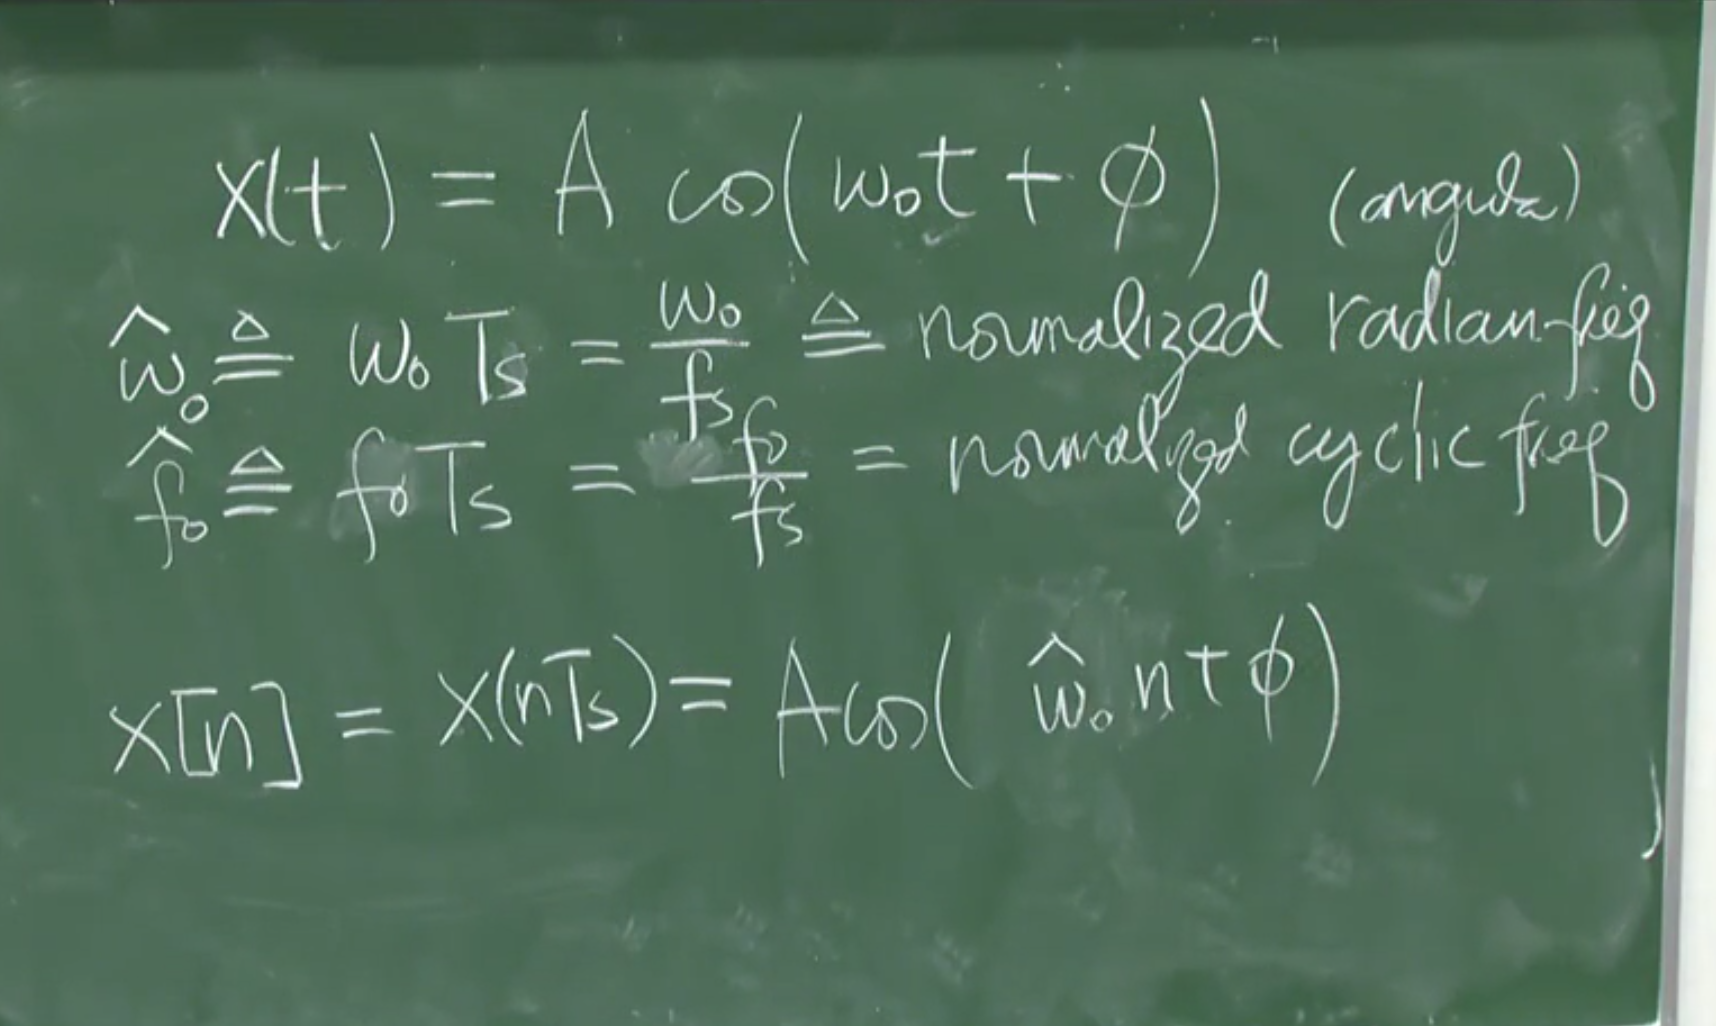 x(t) = A cos(ω₀t + ϕ) (angular)
ω̂₀ ≜ ω₀ Ts = ω₀/fs ≜ normalized radian freq
f̂₀ ≜ f₀ Ts = f₀/fs = normalized cyclic freq
x[n] = x(nTs) = A cos( ω̂₀ n + ϕ)